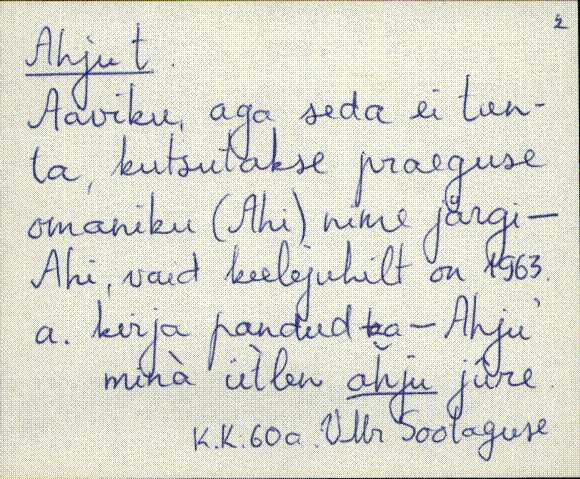 2
Ahju t.
Aaviku, aga seda ei tun-
ta, kutsutakse praeguse
omaniku (Ahi) nime järgi—
Ahi, vaid keelejuhilt on 1963.
a. kirja pandud ka — Ahju
minà ùtlen ahju jùre.
K.K. 60 a. Sootaguse